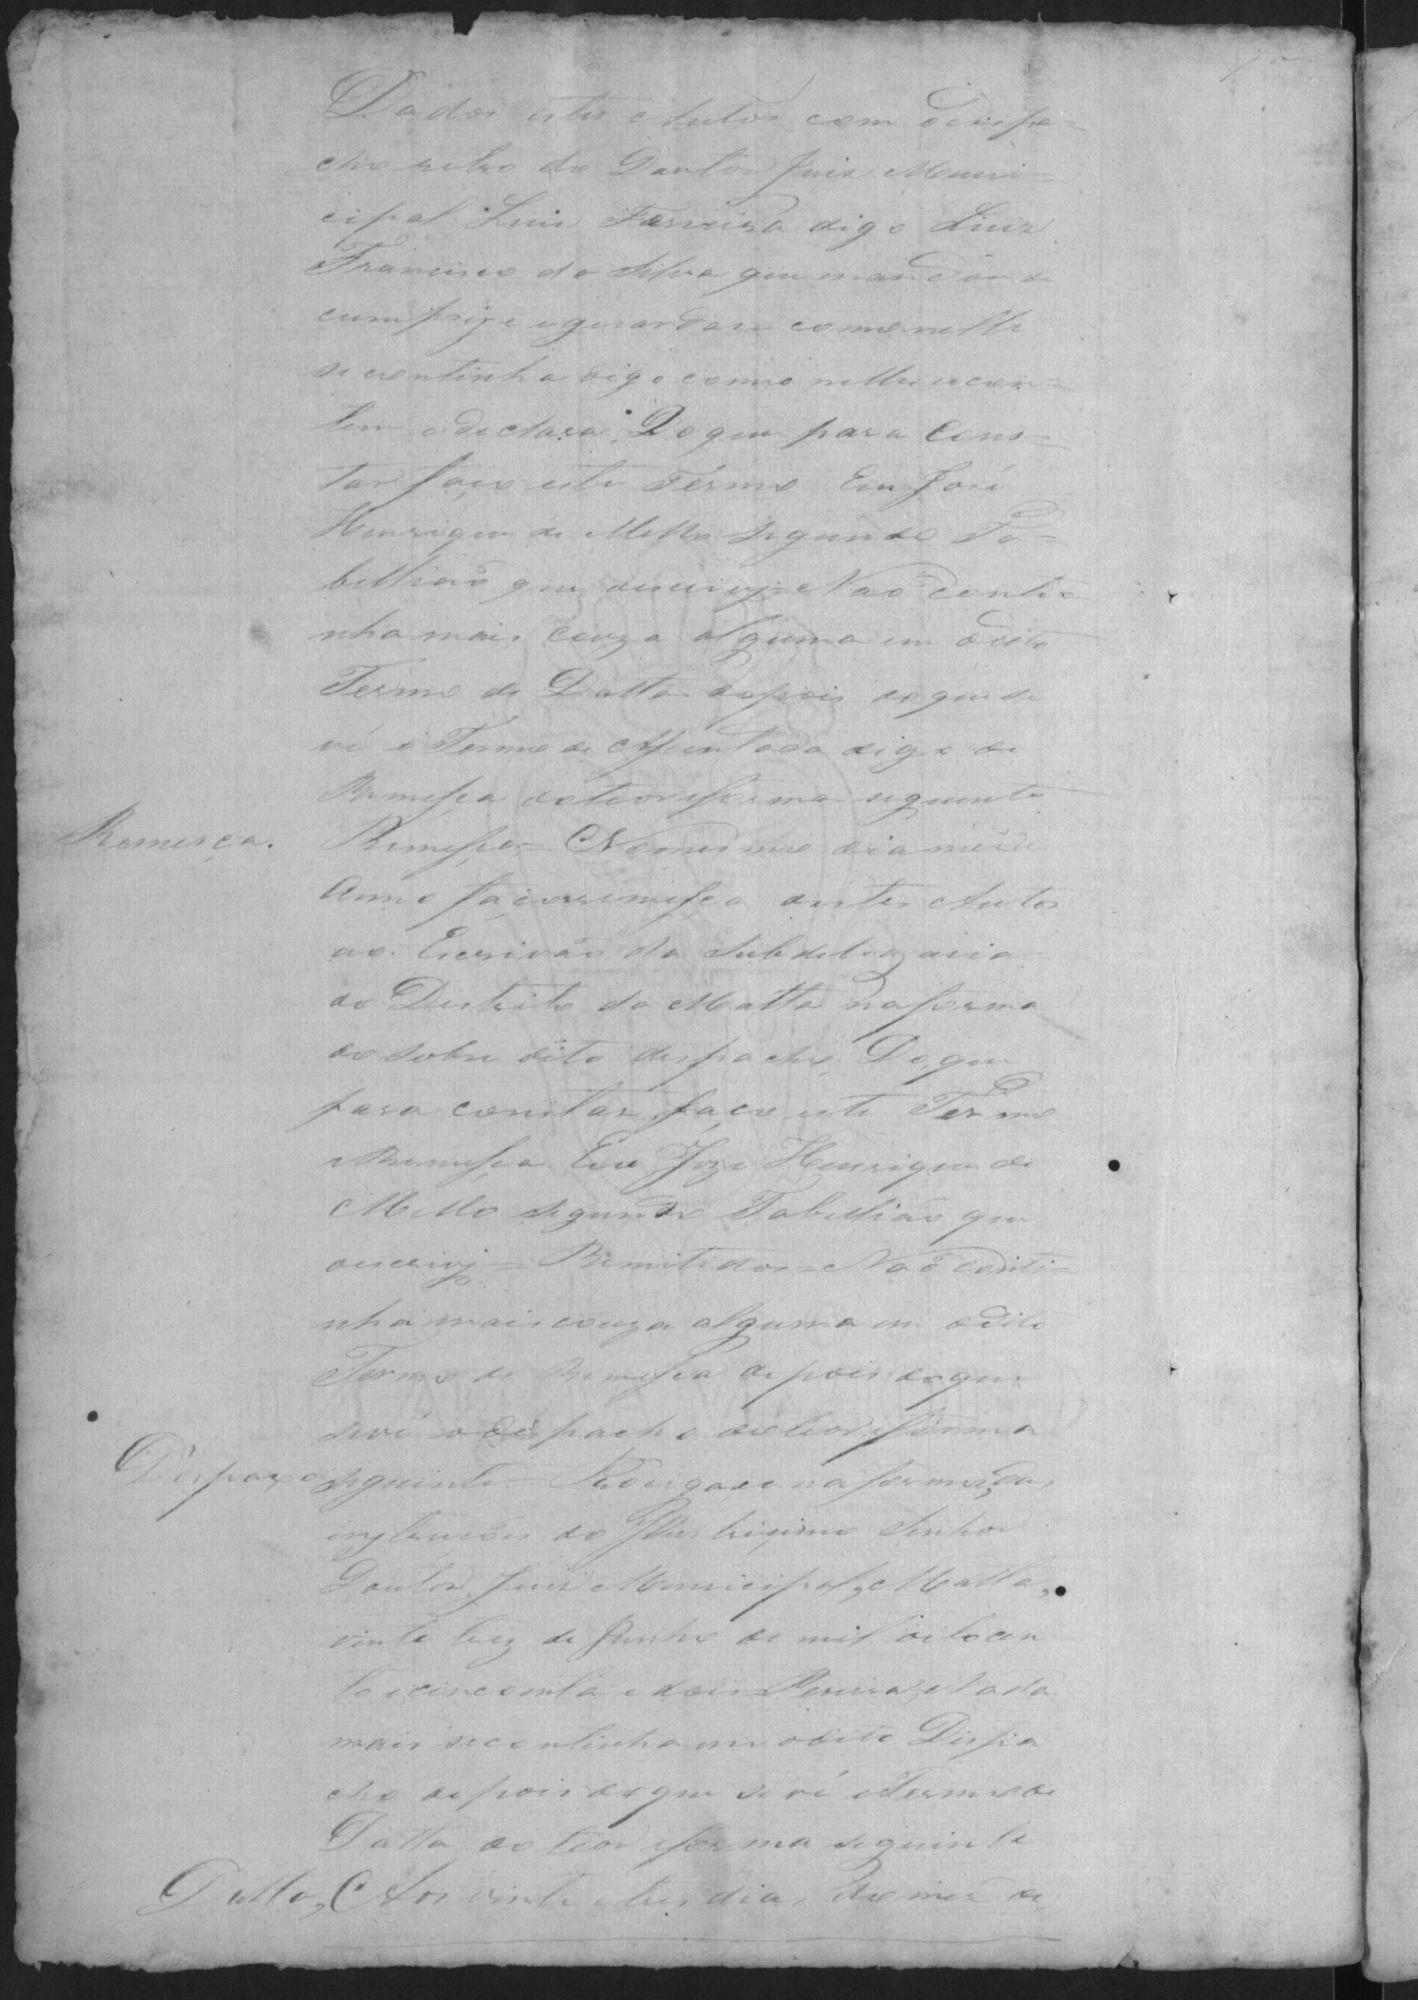 Dados estes Autos com o despa-
cho retro do Doutor Juiz Muni-
cipal Luis Ferreira digo Luiz
Francisco da Silva que mandou se
cumprice e guardase como nelle
se continha digo como nelle se con-
tem e declara. Do que para Cons-
tar faço este Termo Eu José
Henrique de Mello Segundo Ta-
bellião que escrivy = Não conti-
nha mais couza alguma em o dito
Termo de Datta depois do que se
vê o Termo de Ajuntada digo de
Remessa do teor e forma seguinte
Remesça. Remessa = No mesmo dia mez e
Anno faço remessa destes Autos
ao Escrivão da Subdelegacia
do Distrito da Matta na forma
do sobre dito despacho. Do que
para constar faço este Termo
e Remessa Eu Joze Henrique de
Mello Segundo Tabellião que
escrivy = Remitidos = Não conti-
nha mais couza alguma em o dito
Termo de Remessa depois do que
se vê o Despacho do teor e forma
Despaxo seguinte = na forma das
do Illustrissimo Senhor
Doutor Juiz Municipal, Matta,
vinte trez de Junho de mil oitocen
to e cincoenta e dois Pereira, e Nada
mais se continha em o dito Despa
cho depois do que se vê o Termo de
Datta do teor e forma seguinte
Datta, Aos vinte e tres dias do mes de